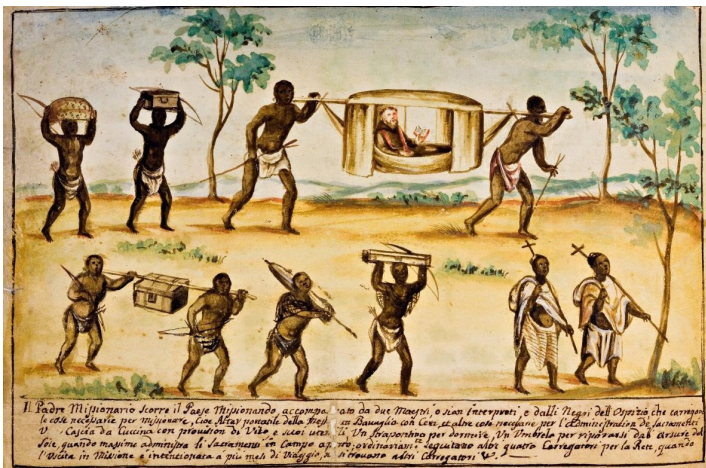 Il Padre Missionario scorre il Paese Missionando, accompa nato da due Maestri, o sian interpreti, e dalli Negri dell Ospizio che carregano
le cose necessarie per missionare, Cioe Altar portatile della Messa, un Bavaglio con Cera, et altre cose necessarie per l'Administrasion de Sacramenti
Cascia da Cuccina con provision di Vito e suoi uten Un Straponlino per dormire, Un Umbrelo per ripararsi dal arsure del
Sole, quando massime administra li Sacramenti in Campo ap ordinariam: seguitano altri quatro Carregatori per la Rete, quando
l'Visita in Missione è intentionata a più mesi di Viaggio, si trovano altri Carregatori